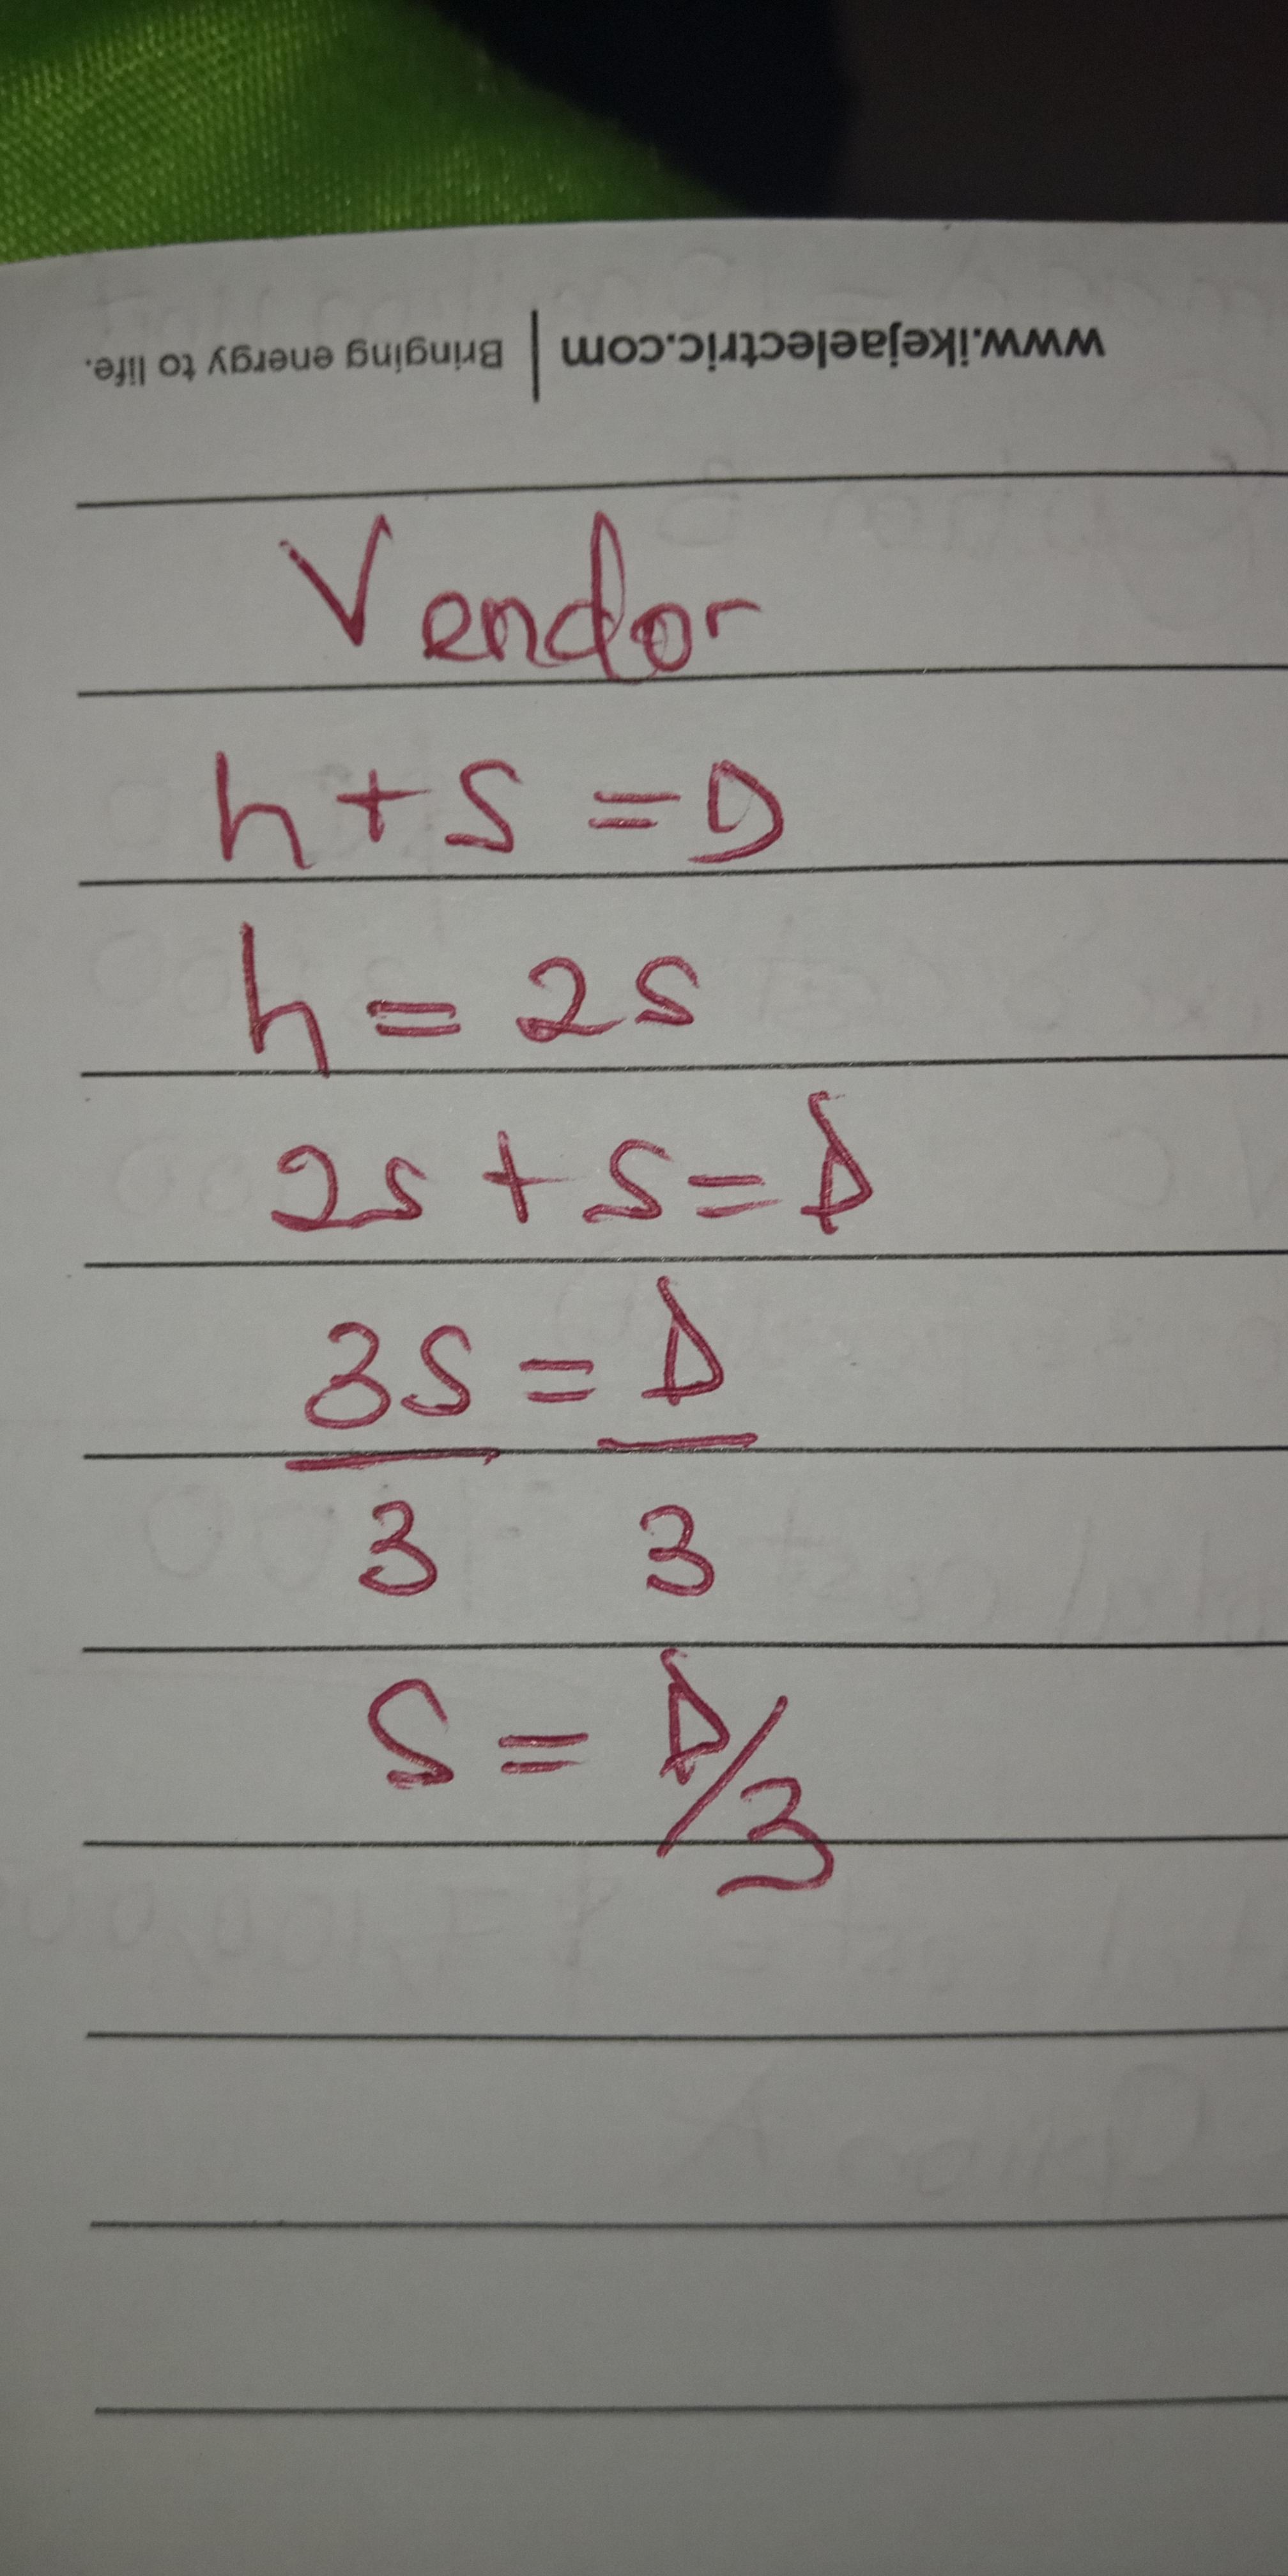 www.ikejaelectric.com | Bringing energy to life.
Vendor
h + S = D
h = 2s
2s + s = D
3S = D
3 3
S = D/3